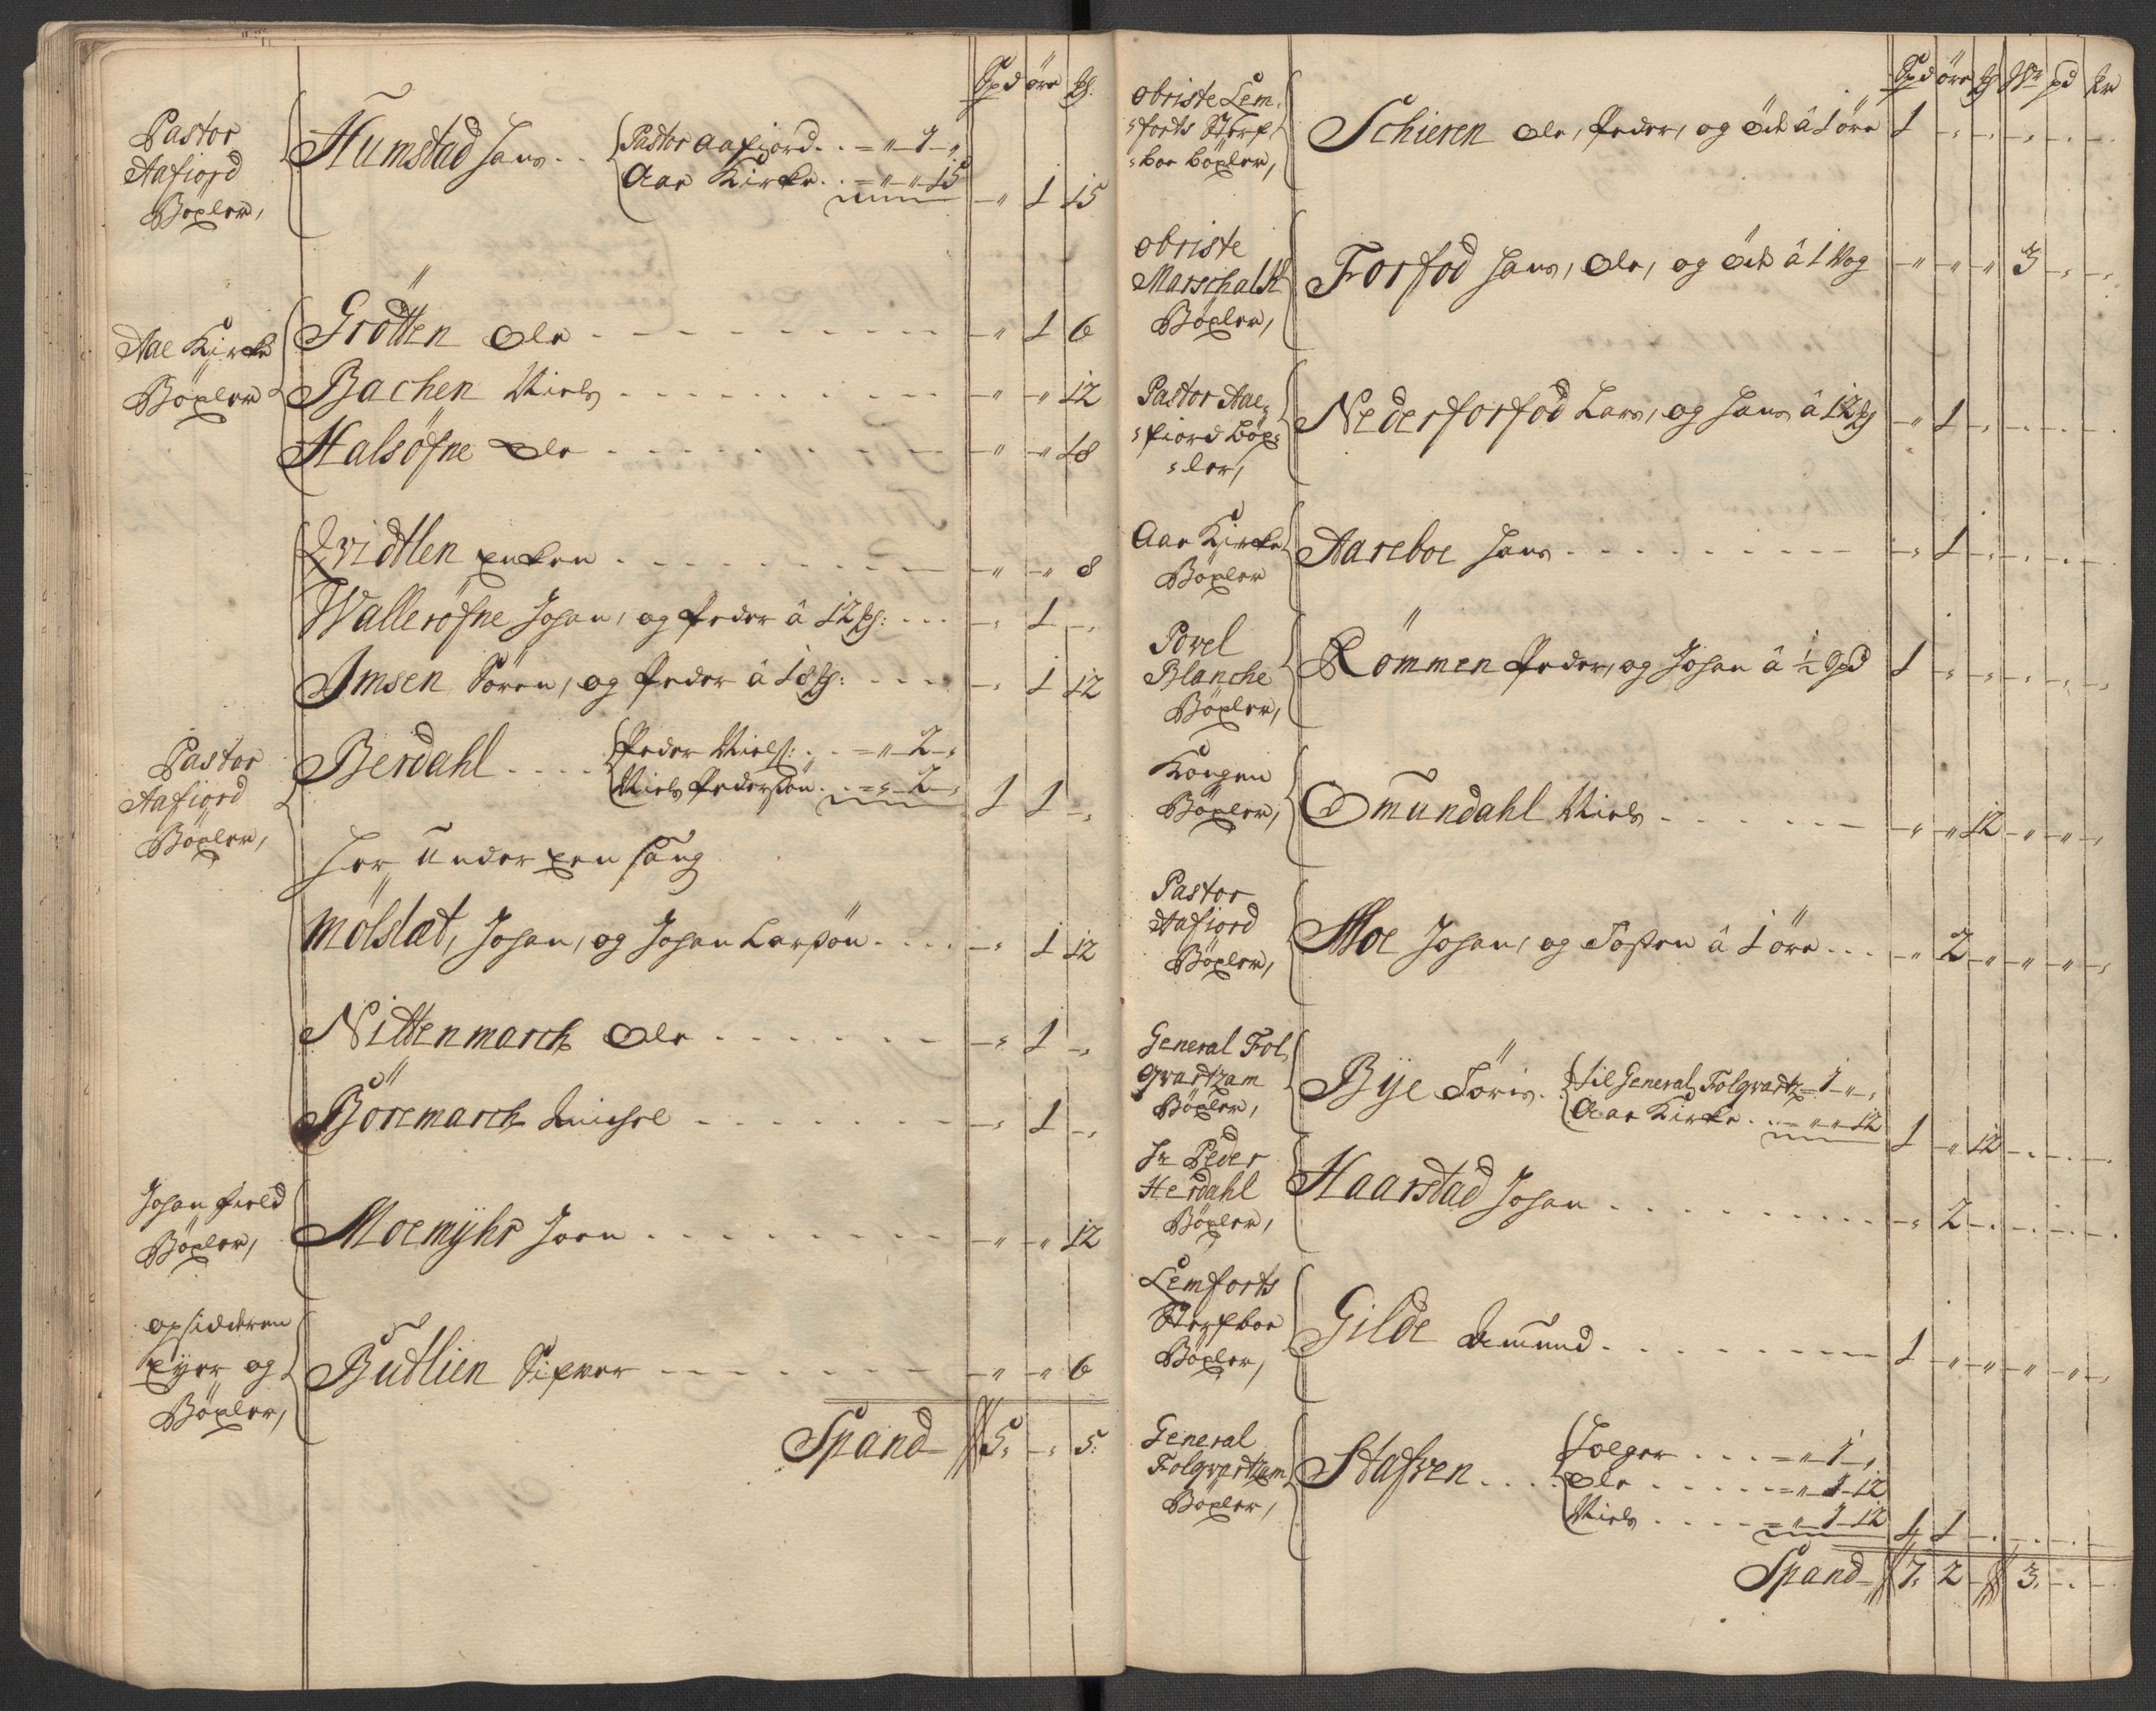 Spd øre ₰.
Pastor
Aafiord
Böxler,
Humstad Hans . . Pastor Aafiord . . = " 1 "
Aae Kirke . . = " " 15
" 1 15
Aae Kirke
Böxler
Grötten Ole - - - - " 1 6
Bachen Niels . . . . " " 12
Halsöfne Ole . . . . " " 18
Qvidtlen Enken . . . . " " 8
Walleröfne Johan, og Peder â 12 ₰: . . . " 1 "
Imsen Sören, og Peder â 18 ₰: . . . " 1 12
Pastor
Aafiord
Böxler,
Berdahl . . . . Peder Niels: . . = " 2 "
Niels Pedersön . . = " 2 "
1 1 "
Her under een sang
Mölslæt, Johan, og Johan Larsön . . . . " 1 12
Nittenmarch Ole . . . . " 1 "
Böremarch Michel . . . . " 1 "
Johan Field
Böxler,
Moemÿhr Joen . . . . " " 12
opsidderen
Eÿer og
Böxler,
Butlien Sifver . . . . " " 6
Spand 5 " 5:
Spd øre ₰ W: pd
Obriste Lem-
forts Sterf-
boe Böxler,
Schieren Ole, Peder, og Öde â 1 öre 1 - - - - -
Obriste
Marschalk
Böxler,
Forfod Hans, Ole, og Öde â 1 Vog " " " 3 - -
Pastor Aae-
fiord Böx-
ler,
Nederforfod Lars, og Hans â 12 ₰ " 1 - - - -
Aae Kirke
Böxler
Aareboe Hans . . . . " 1 - - - -
Povel
Blanche
Böxler,
Römmen Peder, og Johan â ½ Spd 1 - - - - -
Kongen
Böxler,
Omundahl Niels . . . . " " 12 " " "
Pastor
Aafiord
Böxler,
Moe Johan, og Tosten â 1 öre . . . " 2 " " " "
General Fol-
qvartzam
Böxler,
Bÿe Töris . til General Folqvartz = 1 " "
Aae Kirke . . = " " 12
1 " 12 - - -
Hr Peder
Herdahl
Böxler,
Haarstad Johan . . . . " 2 - - - -
Lemforts
Sterfboe
Böxler,
Gilde Amund . . . . 1 " " " " "
General
Folqvartzam
Böxler,
Stafven . . . . Holger . . . = " 1 "
Ole . . . . = " 1 12
Niels . . . . = " 1 12
1 1 - - - -
Spand 7 2 " 3 - -